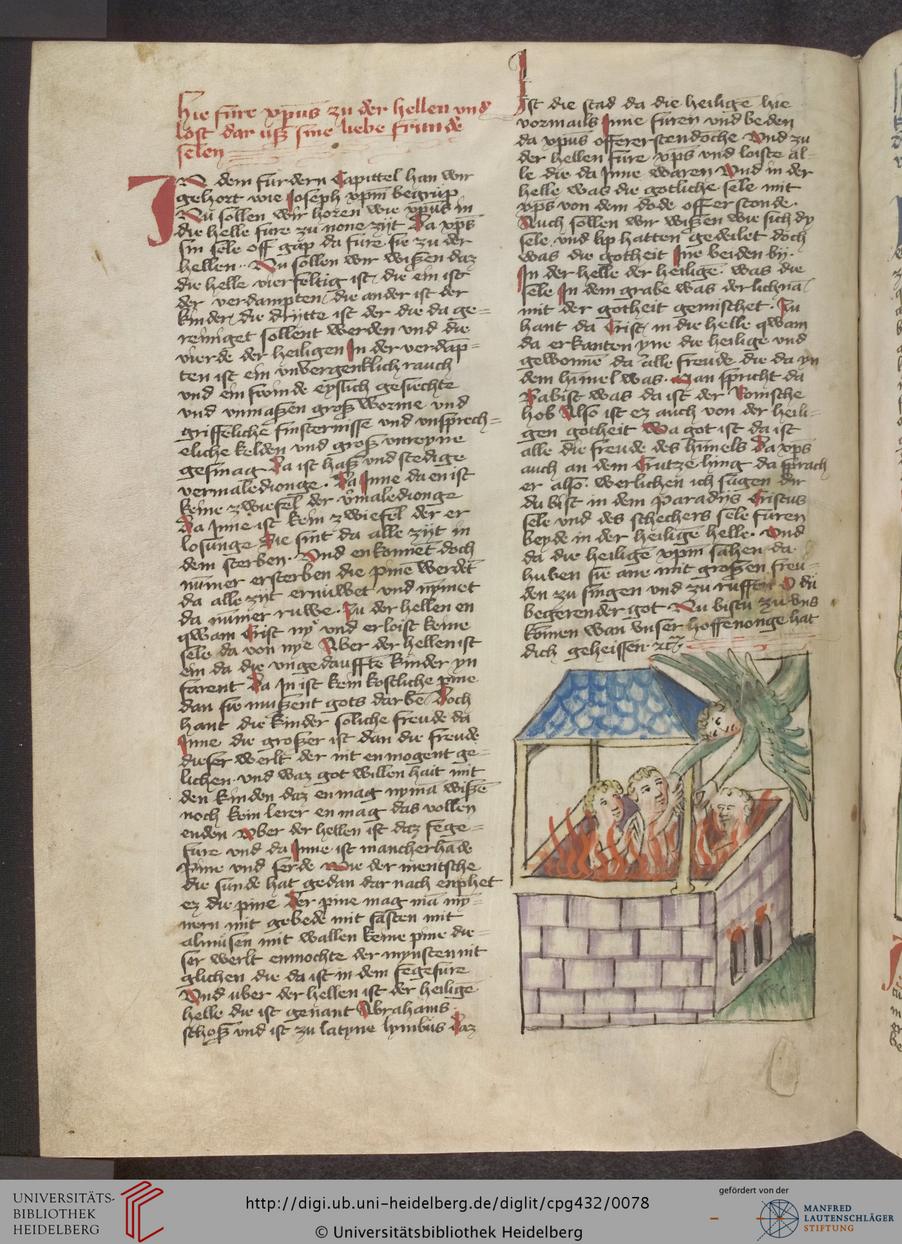 Hie fure xpus zu der hellen und
lost dar uß sine liebe frunde
selen
IN dem furdern Capittel han wir
gehort wie Joseph xpm begrup
Nu sollen wir horen wie xpus in
die helle fure zu none zijt Da xps
sin sele off gap da fure sie zu der
hellen · Nu sollen wir wißen daz
die helle vierfeltig ist die ein ist
der verdampten die ander ist der
kinder die drytte ist der die da ge=
reiniget sollent werden und die
vierde der heiligen In der verdap=
ten ist ein unvergenklich rauch
und ein fremde eyslich gesiechte
und unmaßen groß worme und
griffeliche finsternisse und unsprech=
eliche kelden und groß unreyne
gesmag Da ist haß und stedige
vermaledionge · Da Inne da en ist
keine zwiefel der vmaledionge
Da Inne ist kein zwiefel der er
losunge Sie sint da alle zijt in
dem sterben · Und en konnet doch
numer ersterben die pine werdet
da alle zijt ernuwet und nymet
da numer ruwe · Zu der hellen en
qwam Crist ny und erloist keine
sele da von nye Aber der hellen ist
ein da die ungedauffte kinder yn
farent Da In ist kein kostliche pine
dan sie mußent gots darben Doch
hant die kinder soliche freude da
Inne die großer ist dan die freude
dieser werlt der nit en mogent ge=
lichen · und waz got willen hait mit
den kinden daz en mag nyma wißē
noch kein lerer en mag das vollen
enden Aber der hellen ist daz fege=
fure und da Inne ist mancherhāde
pine und serde Wie der mentsche
die sunde hat gedan dar nach enphet
er die pine Der pine mag mā my=
nern mit gebede mit fasten mit
almusen mit wallen keine pine die=
ser werlt en mochte der mynsten nit
glichen die da ist in dem fegefure
Und uber der hellen ist der heilige
helle die ist genant Abrahams
schoß und ist zu latyne lymbus Daz
Ist die stad da die heiligē hie
vormails Inne furen und beden
da xpus offererstendoche Und zu
der hellen fure xps und loiste al=
le die da Inne waren Und in der
helle was die gotliche sele mit
xps von dem dode offerstonde ·
Auch sollen wir wißen wie sich dy
sele und lip hatten gedeilet doch
was die gotheit Ine beiden by ·
In der helle der heilige · was die
sele In dem grabe was der lichnā
mit der gotheit gemischet · Zu
hant da Crist in die helle qwam
da erkanten yne die heilige und
gewonne da alle freude die da yn
dem himel was · Man spricht da
Pabist was da ist der Romische
hob Also ist ez auch von der heili=
gen gotheit Wa got ist da ist
alle die freude des himels Da xps
auch an dem Crutze hing da sprach
er also werlichen ich sagen dir
du bist in dem paradijs Cristus
sele und des schechers sele furen
beyde in der heilige helle · Und
da die heilige xpm sahen da
huben sie ane mit großen freu=
den zu singen und zu ruffen O du
begerender got Nu bistu zu uns
komen wan unser hoffenonge hat
dich geheissen
UNIVERSITÄTS-
BIBLIOTHEK
HEIDELBERG
http://digi.ub.uni-heidelberg.de/diglit/cpg432/0078
© Universitätsbibliothek Heidelberg
gefördert von der
MANFRED
LAUTENSCHLÄGER
STIFTUNG